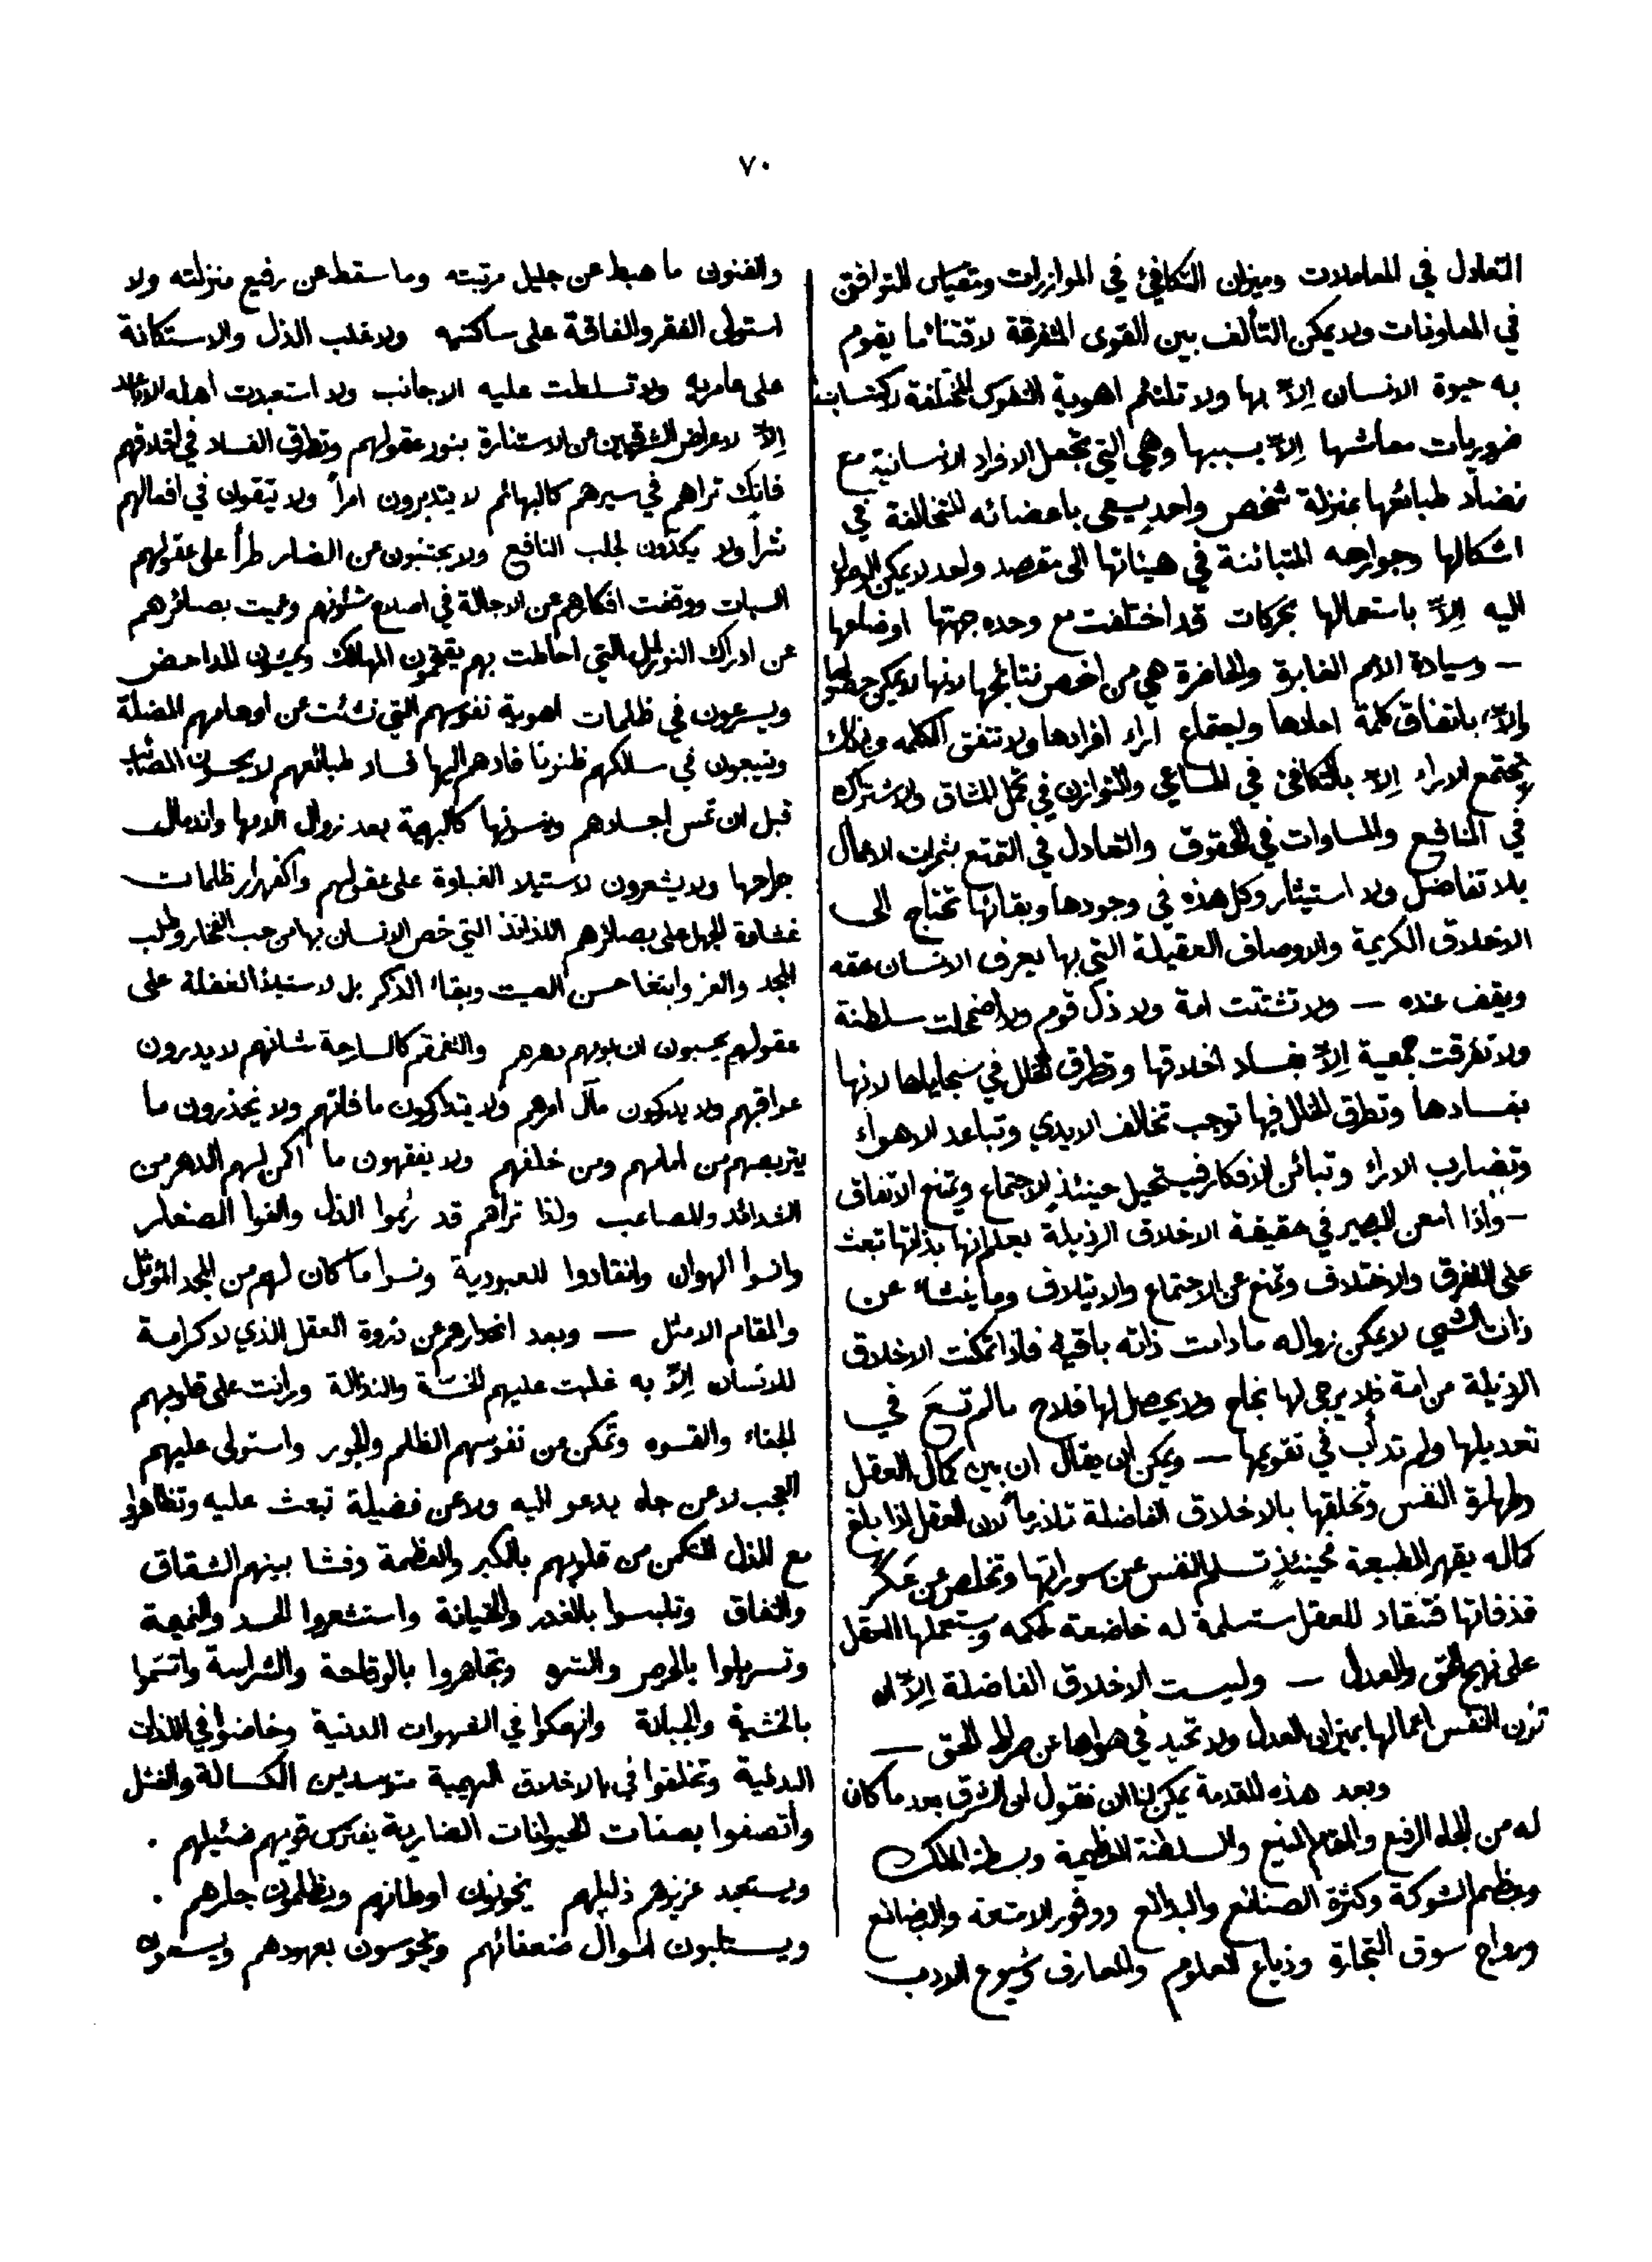 ٧٠
التعادل في المعاملات وميزان التكافئ في الموازرات ومقياس التوافق
في المعاونات ولا يمكن التألف بين القوى المتفرقة لاقتناء ما يقوم
به حيوة الانسان إلاّ بها ولا تلتئم اهوية النفوس المختلفة لاكتساب
ضروريات معاشها إلاّ بسببها وهي التي تجعل الافراد الانسانية مع
تضادّ طبائعها بمنزلة شخص واحدٍ يسعى باعضائه المتخالفة في
اشكالها وجوارحه المتبائنة في هيئاتها الى مقصد واحد لا يمكن الوصول
اليه إلاّ باستعمالها بحركات قد اختلفت مع وحده جهتها اوضاعها
— وسيادة الامم الغابرة والحاضرة هي من اخص نتائجها لانها لا يمكن حصولها
إلاّ باتفاق كلمة احادها واجتماع اراء افرادها ولا تتفق الكلمه وكذلك
لا يجتمع الاراء إلاّ بالتكافئ في المساعي والتوازن في تحمل المشاق والاشتراك
في المنافع والمساوات في الحقوق والتعادل في التمتع بثمرات الاعمال
بلا تفاضل ولا استيثار وكل هذه في وجودها وبقائها تحتاج الى
الاخلاق الكريمة والاوصاف العقيلة التي بها يعرف الانسان حقه
ويقف عنده — ولا تشتتت امة ولا ذلّ قوم ولا اضمحلت سلطنة
ولا تفرقت جمعية إلاّ بفساد اخلاقها وتطرق الخلل في سجاياها لانها
بفسادها وتطرق الخلل فيها توجب تخالف الايدي وتباعد الاهواء
وتضارب الاراء وتبائن الافكار فيستحيل حينئذٍ الاجتماع ويمتنع الاتفاق
— واذا امعن البصير في حقيقة الاخلاق الرذيلة يعلم انها بذاتها تبعث
على التفرق والاختلاف وتمنع عن الاجتماع والايتلاف وما ينشاء عن
ذات الشيء لا يمكن زواله ما دامت ذاته باقية فاذا تمكنت الاخلاق
الرذيلة من امة فلا يرجى لها نجاح ولا يحصل لها فلاح مالم تسعَ في
تعديلها ولم تدأب في تقويمها — ويمكن ان يقال ان بين كمال العقل
وطهارة النفس وتخلقها بالاخلاق الفاضلة تلازماً لان العقل اذا بلغ
كماله يقهر الطبيعة فحينئذٍ تسلم النفس عن سوراتها وتخلص من عكر
قذفاتها فتنقاد للعقل مستسلمة له خاضعة لحكمه ويستعملها العقل
على نهج الحق والعدل — وليست الاخلاق الفاضلة إلاّ ان
تزن النفس اعمالها بميزان العدل ولا تحيد في هواها عن صراط الحق —
وبعد هذه المقدمة يمكن لنا ان نقول ان الشرق بعد ما كان
له من الجاه الرفيع والمقام المنيع والسلطنة العظيمة وبسطة الملك
وعظم الشوكة وكثرة الصنائع والبدائع ووفور الامتعة والبضائع
ورواج سوق التجارة وذياع العلوم والمعارف وشيوع الادب
والفنون ما هبط عن جليل مرتبته وما سقط عن رفيع منزلته ولا
استولى الفقر والفاقة على ساكنيه ولا غلب الذل والاستكانة
على عامريه ولا تسلطت عليه الاجانب ولا استعبدت اهله الاباعد
إلاّ لاعراض الشرقيين عن الاستنارة بنور عقولهم وتطرق الفساد في اخلاقهم
فانك تراهم في سيرهم كالبهائم لا يتدبرون امراً ولا يتقون في افعالهم
شراً ولا يكدّون لجلب النافع ولا يجتنبون عن الضار طرأ على عقولهم
السبات ووقفت افكارهم عن الاجالة في اصلاح شئونهم وعميت بصائرهم
عن ادراك النوازل التي احاطت بهم يقتحمون المهالك ويمشون المداحض
ويسرعون في ظلمات اهوية نفوسهم التي نشئت عن اوهامهم المضلة
ويتبعون في مسالكهم ظنونا قادهم اليها فساد طبائعهم لا يحسون المصائب
قبل ان تمس اجسادهم وينسونها كالبهيمة بعد زوال الامها واندمال
جراحها ولا يشعرون لاستيلا الغباوة على عقولهم واكفهرار ظلمات
غشاوة الجهل على بصائرهم اللذائذ التي خص الانسان بها من حب الفخار وطلب
المجد والعز وابتغا حسن الصيت وبقاء الذكر بل لاستيلاء الغفلة على
عقولهم يحسبون ان يومهم دهرهم والتقمقم كالسارحة شانهم لا يدرون
عواقبهم ولا يدركون مآل امرهم ولا يتداركون ما فاتهم ولا يحذرون ما
يتربصهم من امامهم ومن خلفهم ولا يفقهون ما اكمن لهم الدهر من
الشدائد والمصاعب ولذا تراهم قد رئموا الذل والفوا الصغار
وانسوا الهوان وانقادوا للعبودية ونسوا ما كان لهم من المجد المؤثل
والمقام الامثل — وبعد انحدارهم عن ذروة العقل الذي لا كرامة
للانسان إلاّ به غلبت عليهم الخسّة والنذالة ورانت على قلوبهم
الجفاء والقسوه وتمكن من نفوسهم الظلم والجور واستولى عليهم
العجب لا عن جاه يدعو اليه ولا عن فضيلة تبعث عليه وتظاهروا
مع الذل المتمكن من قلوبهم بالكبر والعظمة وفشا بينهم الشقاق
والنفاق وتلبسوا بالغدر والخيانة واستشعروا الحسد والنميمة
وتسربلوا بالحرص والشره وتجاهروا بالوقاحة والشراسة واتسموا
بالخشية والجبانة وانهمكوا في الشهوات الدنية وخاضوا في اللذات
البدنية وتخلقوا في بالاخلاق البهيمية متوسدين الكسالة والفشل
واتصفوا بصفات الحيوانات الضارية يفترس قويهم ضئيلهم .
ويستعبد عزيزهم ذليلهم يخونون اوطانهم ويظلمون جارهم .
ويستلبون اموال ضعفائهم ويخوسون بعهودهم ويسعون